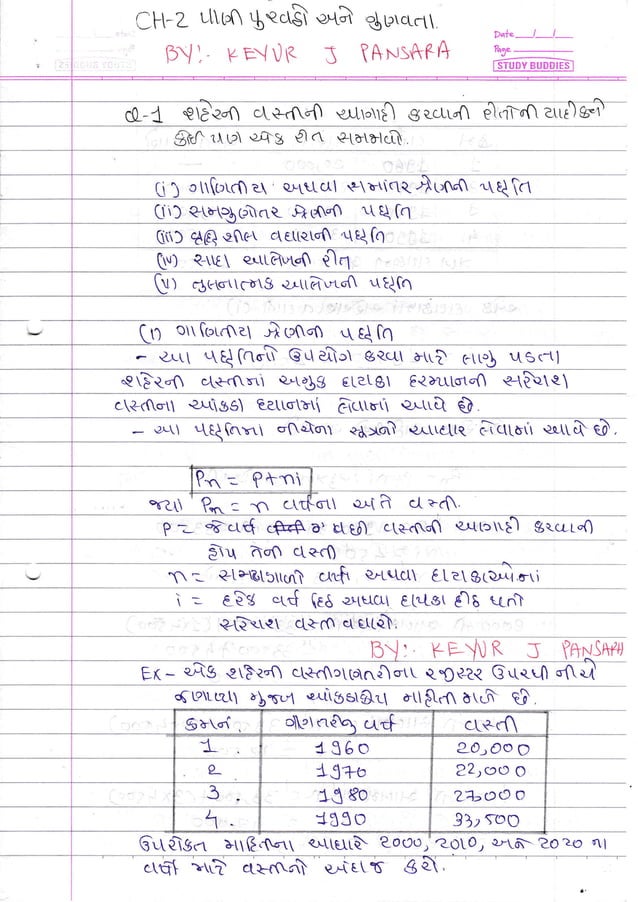 CH-2 પાણી પુરવઠો અને ગુણવતા.
BY:- KEYUR J PANSARA
Date __/__/__
Page
STUDY BUDDIES
Q-1 શહેરની વસ્તીની આગાહી કરવાની રીતોની યાદી કરી
કોઈ પણ એક રીત સમજાવો.
(i) ગાણિતીય અથવા સમાંતર શ્રેણીની પધ્ધતિ
(ii) સમગુણોતર શ્રેણીની પધ્ધતિ
(iii) વૃધ્ધિ શીલ વધારાની પધ્ધતિ
(iv) સાદા આલેખની રીત
(v) તુલનાત્મક આલેખની પધ્ધતિ
(i) ગાણિતીય શ્રેણીની પધ્ધતિ
- આ પધ્ધતિનો ઉપયોગ કરવા માટે લાગુ પડતા
શહેરની વસ્તીમાં અમુક દાયકા દરમ્યાનની સરેરાશ
વસ્તીના આંકડા ધ્યાનમાં લેવામાં આવે છે.
- આ પધ્ધતિમા નીચેના સૂત્રનો આધાર લેવામાં આવે છે.
Pn = P+ni
જ્યાં Pn = n વર્ષના અંતે વસ્તી.
P = જે વર્ષ પછી વસ્તીની આગાહી કરવાની
હોય તેની વસ્તી
n = સમયગાળો વર્ષો અથવા દાયકાઓમાં
i = દરેક વર્ષ દિઠ અથવા દાયકા દીઠ થતો
સરેરાશ વસ્તી વધારો.
BY:- KEYUR J PANSARA
EX - એક શહેરની વસ્તીગણતરીના રજીસ્ટર ઉપરથી નીચે
જણાવ્યા મુજબ આંકડાકીય માહીતી મળે છે.
ક્રમનં. ગણતરીનુ વર્ષ વસ્તી
1 . 1960 20,000
2 1970 22,000
3 . 1980 27,000
4 . 1990 33,500
ઉપરોકત માહિતીના આધારે 2000, 2010, અને 2020 ના
વર્ષો માટે વસ્તીનો અંદાજ કરો.